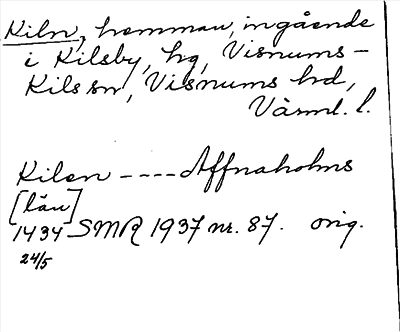 Kiln, hemman, ingående
i Kilsby, hg, Visnums-
Kils sn, Visnums hd,
Värml. l.
Kilen ---- Affnaholms
[län]
1434 SMR 1937 nr. 87. orig.
24/5